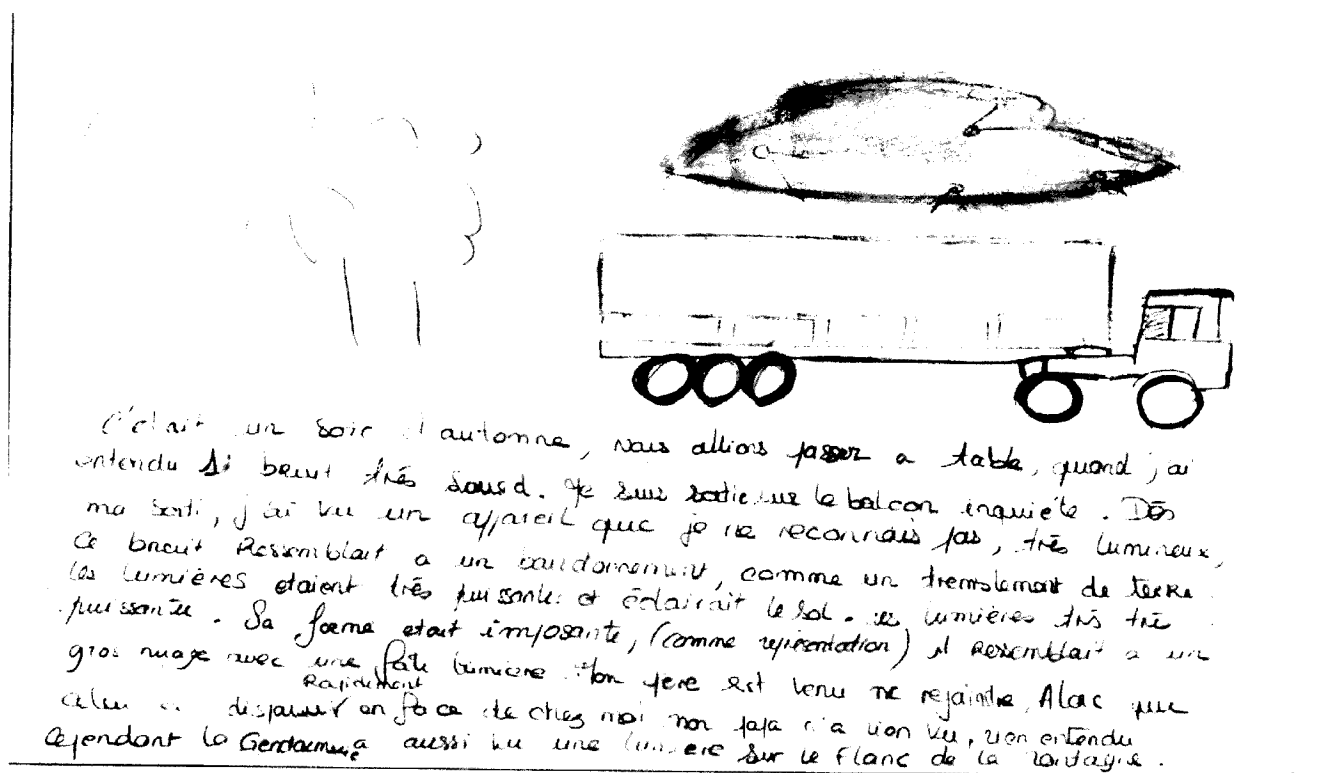 C'était un soir d'automne, nous allions passer a table, quand j'ai
entendu bruit très sourd. Je suis sortie sur le balcon inquiète. Dès
ma sorti, j'ai vu un appareil que je ne reconnais pas, très lumineux,
Ce bruit Ressemblait a un bourdonnement, comme un tremblement de terre.
les lumières etaient très puissantes et éclairait le sol. les lumières très très
puissante. Sa forme etait imposante, (comme représentation) il Ressemblait a un
gros nuage avec une lumière. Mon père est venu me rejoindre, Alors que
Rapidement
celui ci disparut en face de chez moi mon papa n'a rien vu, rien entendu
Cependant la Gendarmerie a aussi vu une lumière sur le flanc de la montagne.